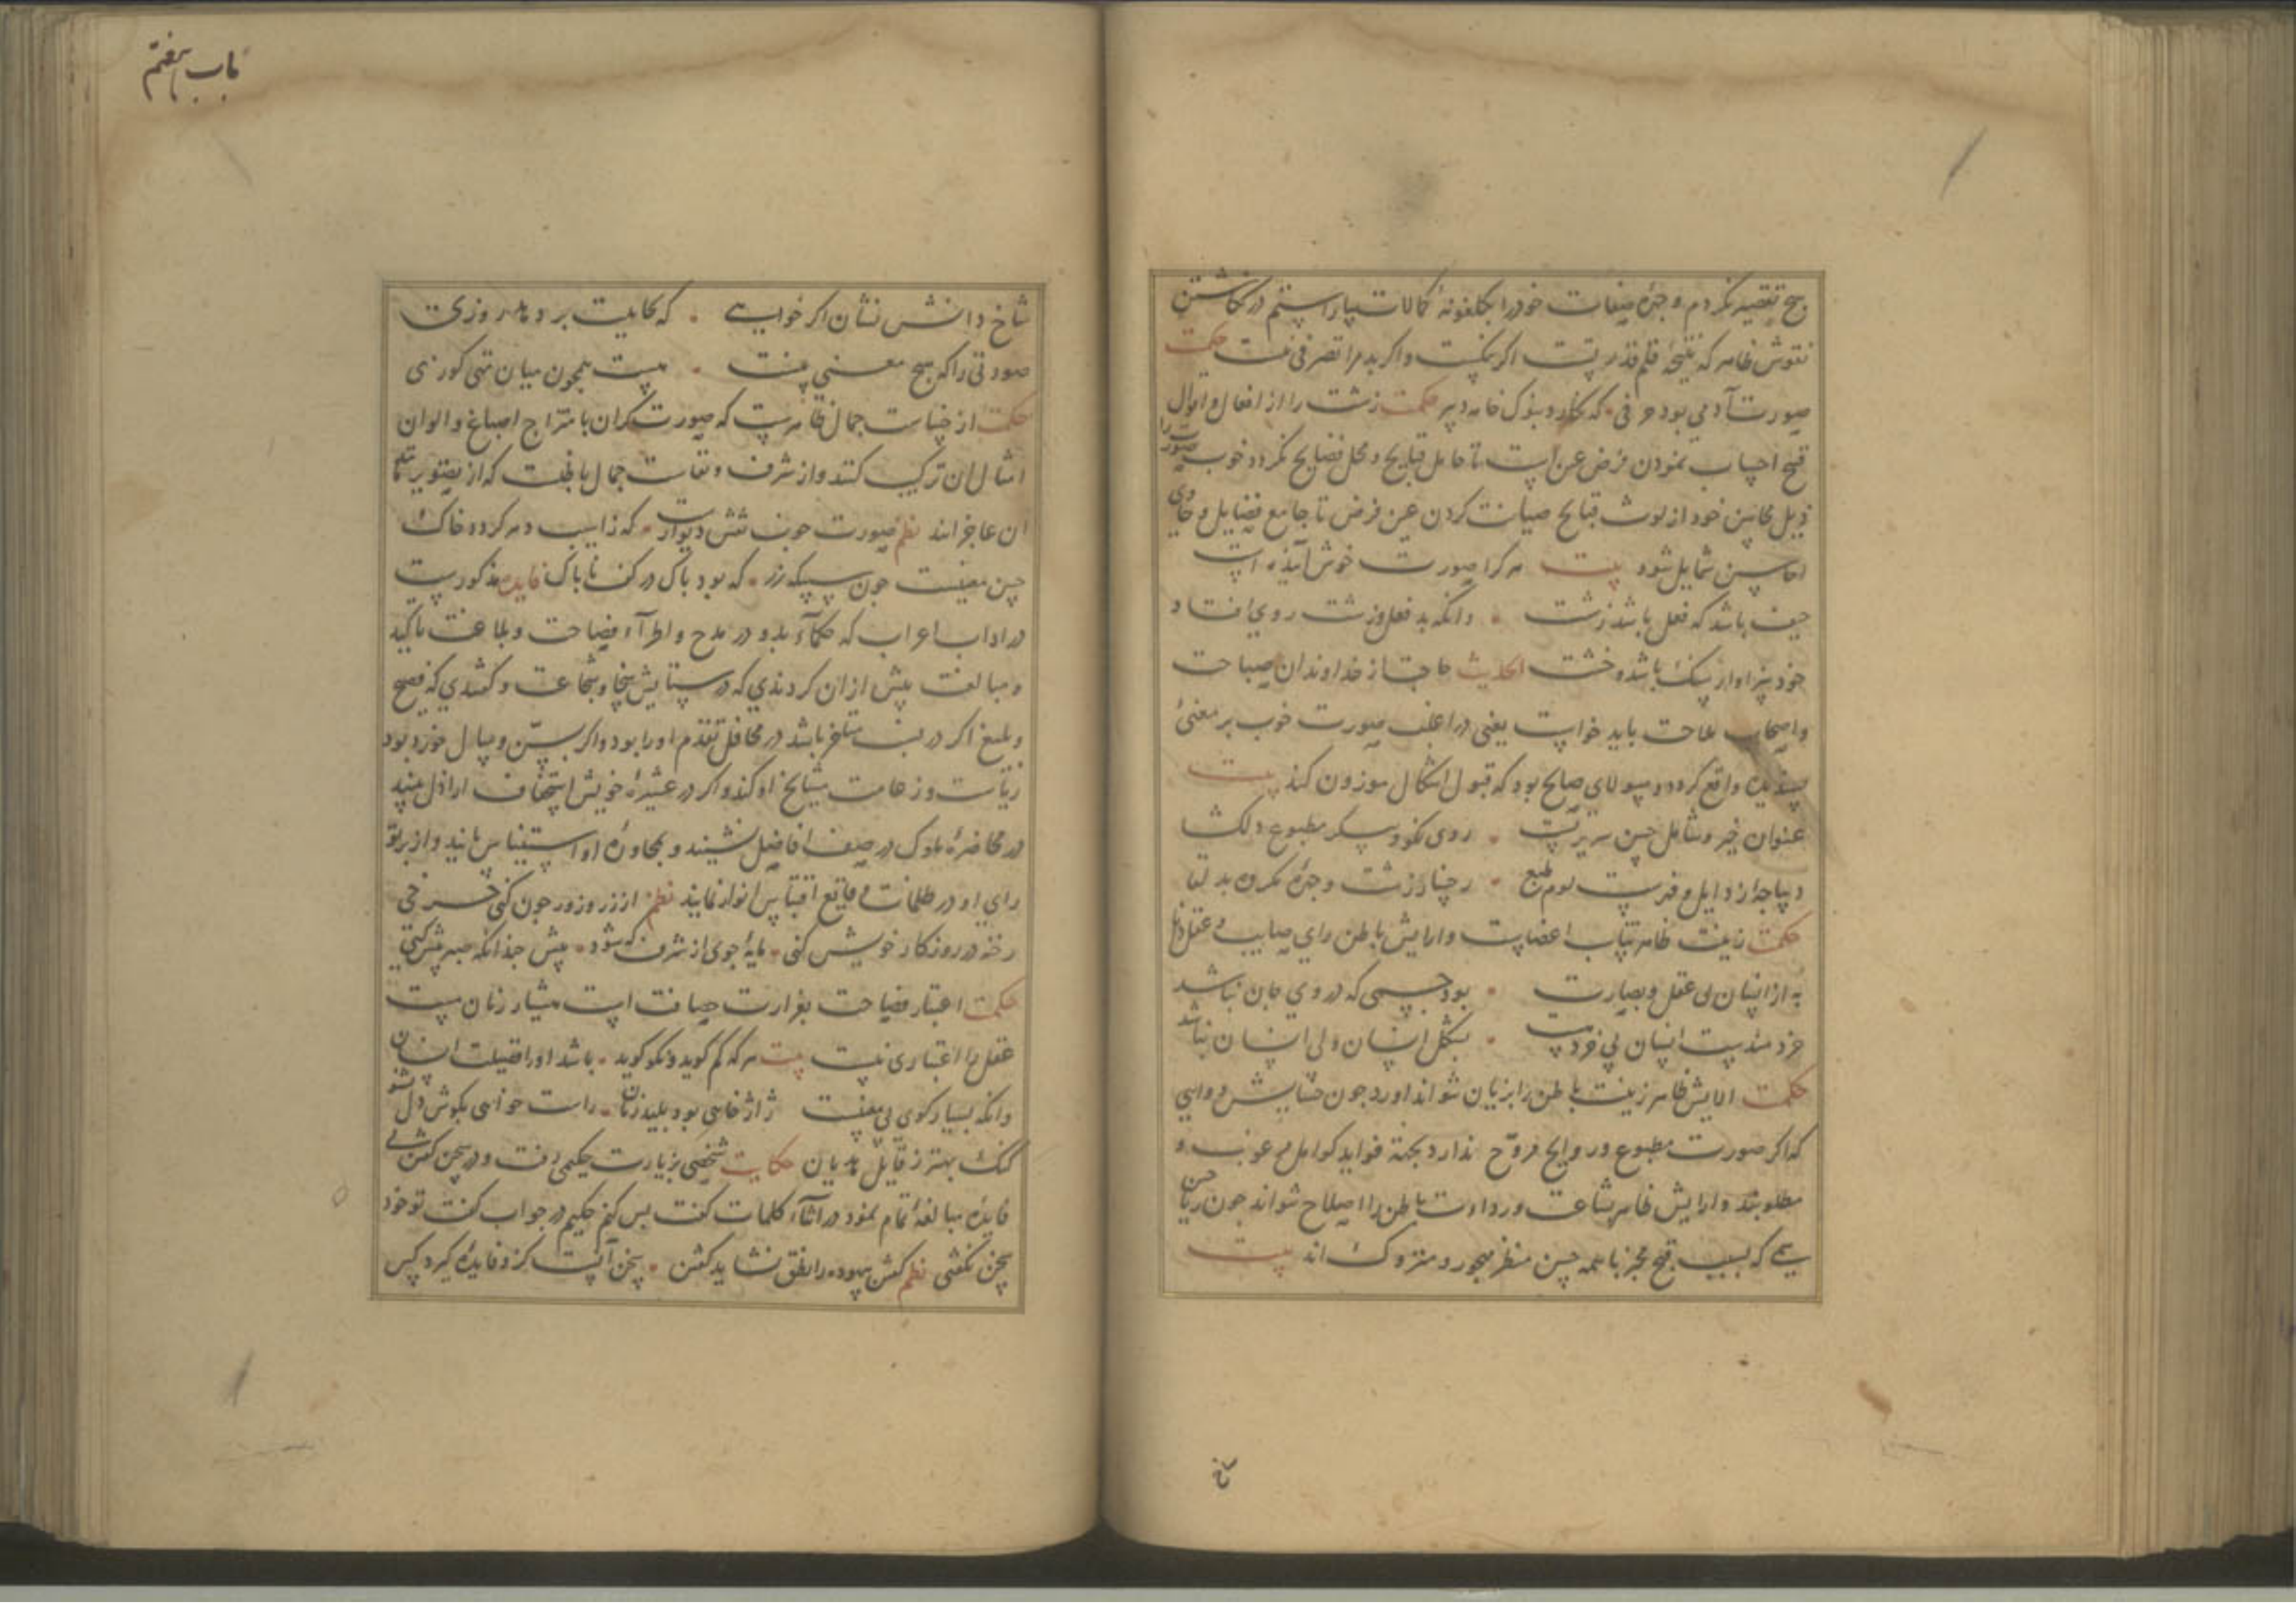 هیچ تقصیر نکردم و چهرهٔ صفات خود را بگلغونهٔ کمالات بیاراستم در نگاشتن
نقوش ظاهر که نتیجهٔ قلم قدرتست اگر نیکست و اگر بد مرا تصرفی نیست حکمت
صورت آدمی بود حرفی که نگارد بنوک خامه دبیر حکمت زشت را از افعال و اقوال
قبیح اجتناب نمودن فرض عین است تا حامل قبایح و محل فضایح نگردد و خوب صورت را
ذیل محاسن خود از لوث قبایح صیانت کردن عین فرض تا جامع فضایل و حاوی
احاسن شمایل شود بیت هر کرا صورت خوش آینده است
حیف باشد که فعل باشد زشت وانکه بد فعل و زشت روی افتاد
خود سزاوار سنک باشد و خشت الحدیث حاجت از خداوندان صباحت
و اصحاب ملاحت باید خواست یعنی در اغلب صورت خوب بر معنیٔ
پسندیده واقع کردد و هیولای صالح بود که قبول اشکال موزون کند بیت
عنوان خیر و شامل حسن سریرتست روی نکو و پیکر مطبوع دلکشا
دیباجهٔ رذایل و فهرست لوم طبع رخسار زشت و چهرهٔ مکروه بد لقا
حکمت زینت ظاهر تناسب اعضاست و آرایش باطن رای صایب و عقل
به از انسان بی عقل و بصارت بود جسمی که در وی جان نباشد
خردمندیست انسان بی خرد پس بشکل انسان ولی انسان نباشد
حکمت الایش ظاهر زینت باطن را بزیان نتواند آورد چون
که اگر صورت مطبوع و روایح مروّح ندارد بجهة فواید کوامل مرغوب و
مطلوبند و آرایش ظاهر بشاعت و رداءت باطن را اصلاح نتواند چون حسن
که بسبب قبح مخبر با همه حسن منظر مهجور و متروک اند بیت
شاخ
باب هفتم
شاخ دانش نشان اگر خواهی که کفایت برد بهر روزی
صورتی را که هیچ معنی نیست هست همچون میان تهی کوزی
حکمت از خساست جمال ظاهرست که صورت کران بامتزاج اصباغ و الوان
امثال آن ترکیب کنند و از شرف و نفاست جمال باطنست که از تصویر مثل
آن عاجزاند نظم صورت خوب نقش دیوارست که ز آسیب دهر کردد خاک
حسن معنیست چون سبیکهٔ زر که بود پاک در کف ناپاک فایده مذکورست
در آداب اعراب که حکمآء بدو در مدح و اطرآء فصاحت و بلاغت تاکید
و مبالغت بیش از آن کردندی که در ستایش سخا و شجاعت و گفتندی که فصیح
و بلیغ اگر در نسب متاخر باشد در محافل تقدم او را بود و اگر بسنّ و سال خورد بود
ریاست و زعامت مشایخ او کند و اگر در عشیرهٔ خویش استخفاف اراذل بیند
در محاضرهٔ ملوک در صف افاضل نشیند و بمحاورهٔ او استیناس یابند و از برق
رای او در ظلمات وقایع اقتباس انوار نمایند نظم از زر و زور چون کنی خرجی
رخنه در روزکار خویش کنی مایهٔ جوی از شرف که شود بیش چندانکه صبر بیش کنی
حکمت اعتبار فصاحت بغزارت حصافت است بسیار زنان هست
عقل را اعتباری نیست بیت هر که کم کوید و نکو کوید باشد او را فضیلت انسان
وانکه بسیار کوی بی معنیست ژاژ خایی بود بلید زبان راست خواهی بکوش دل بشنو
کنک بهتر ز قایل هذیان حکایت شخصی بزیارت حکیمی رفت و در سخن گفتن بی
فایده مبالغهٔ تمام نمود در اثنآء کلمات گفت بس کنم حکیم در جواب گفت تو خود
سخن نگفتی نظم گفتن بیهوده را نطق نشاید گفتن سخن آنست کزو فایده گیرد کس